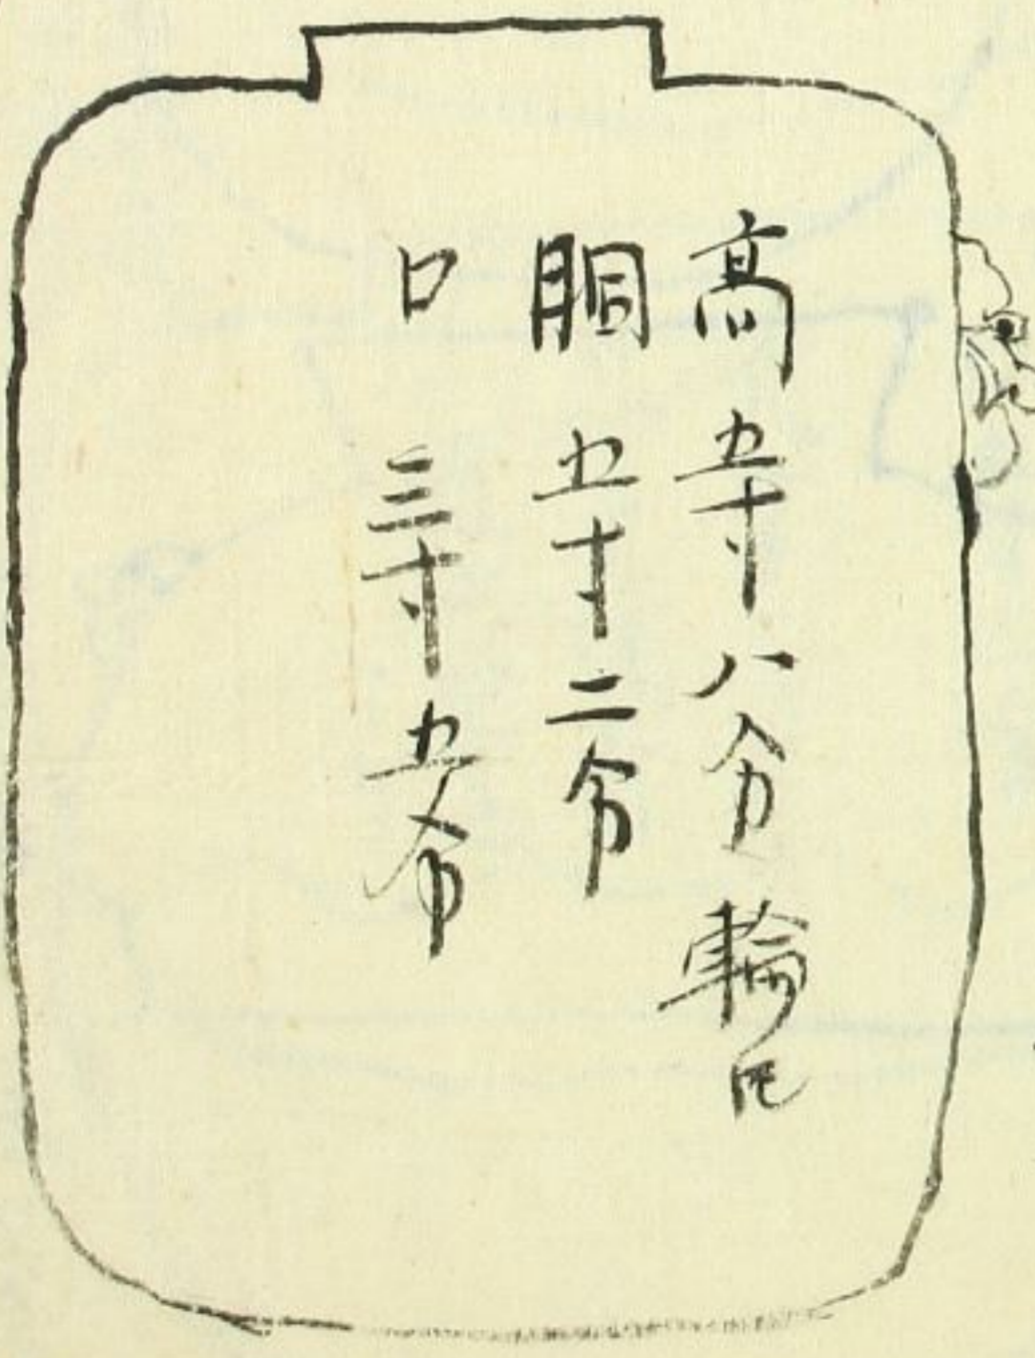 高 五寸八分 輪口
胴 五寸二分
口 三寸五分